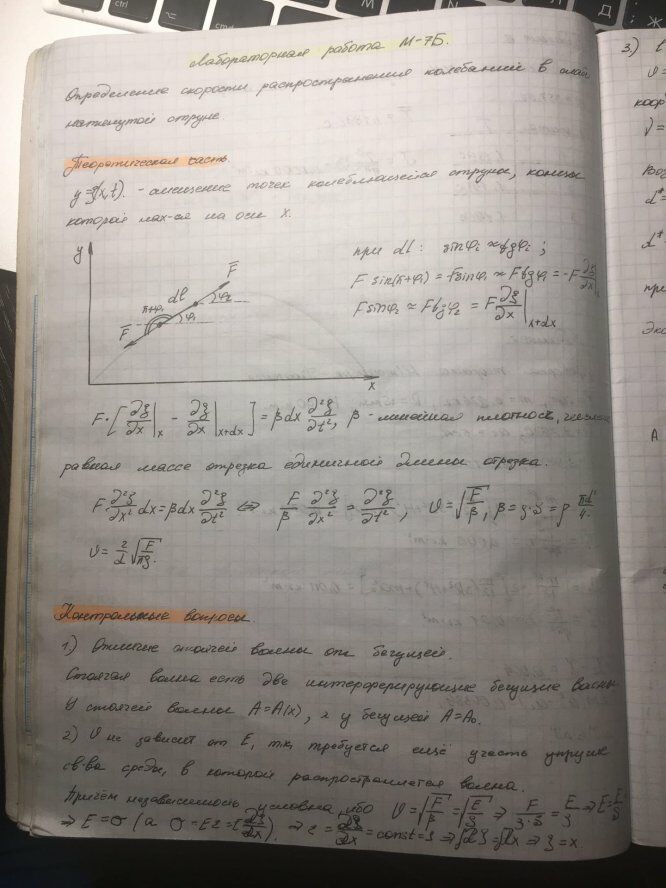 Лабораторная работа М-7Б.
Определение скорости распространения колебаний в
натянутой струне
Теоретическая часть
y = ξ(x,t). - смещение точек колеблющейся струны, концы
которой нах-ся на оси x.
при dl: sinφᵢ ≈ tgφᵢ ;
F sin(π+φ₁) = -Fsinφ₁ ≈ Ftgφ₁ = -F ∂ξ/∂x|ₓ
Fsinφ₂ ≈ Ftgφ₂ = F ∂ξ/∂x|x+dx
y
F
dl
π+φ₁
φ₂
F
φ₁
x
F·[∂ξ/∂x|x - ∂ξ/∂x|x+dx] = β dx ∂²ξ/∂t², β - линейная плотнос,
равная массе отрезка единичной длины отрезка.
F ∂²ξ/∂x² dx = β dx ∂²ξ/∂t² ⇔ F/β ∂²ξ/∂x² = ∂²ξ/∂t², υ = √(F/β), β = ρ·S = ρ πd²/4.
υ = 2/d √(F/πρ).
Контрольные вопросы.
1.) Отличие стоячей волны от бегущей.
Стоячая волна есть две интерферирующие бегущие волны
У стоячей волны A = A(x), а у бегущей A = A₀.
2.) υ не зависит от E, т.к. требуется ещё учесть упругие
св-ва среды, в которой распространяется волна.
Причём независимость условна, ибо υ = √(F/β) = √(E/ρ) ⇒ F/ρ·S = E/ρ ⇒ E = F/S
⇒ E = σ (а σ = Eε = E dξ/dx). ⇒ ε = dξ/dx = const = 1 ⇒ ∫dξ = ∫dx ⇒ ξ = x.
3.)
υ =
коор
d* =
d*
пр
Экс
A
ctrl
alt
cmd